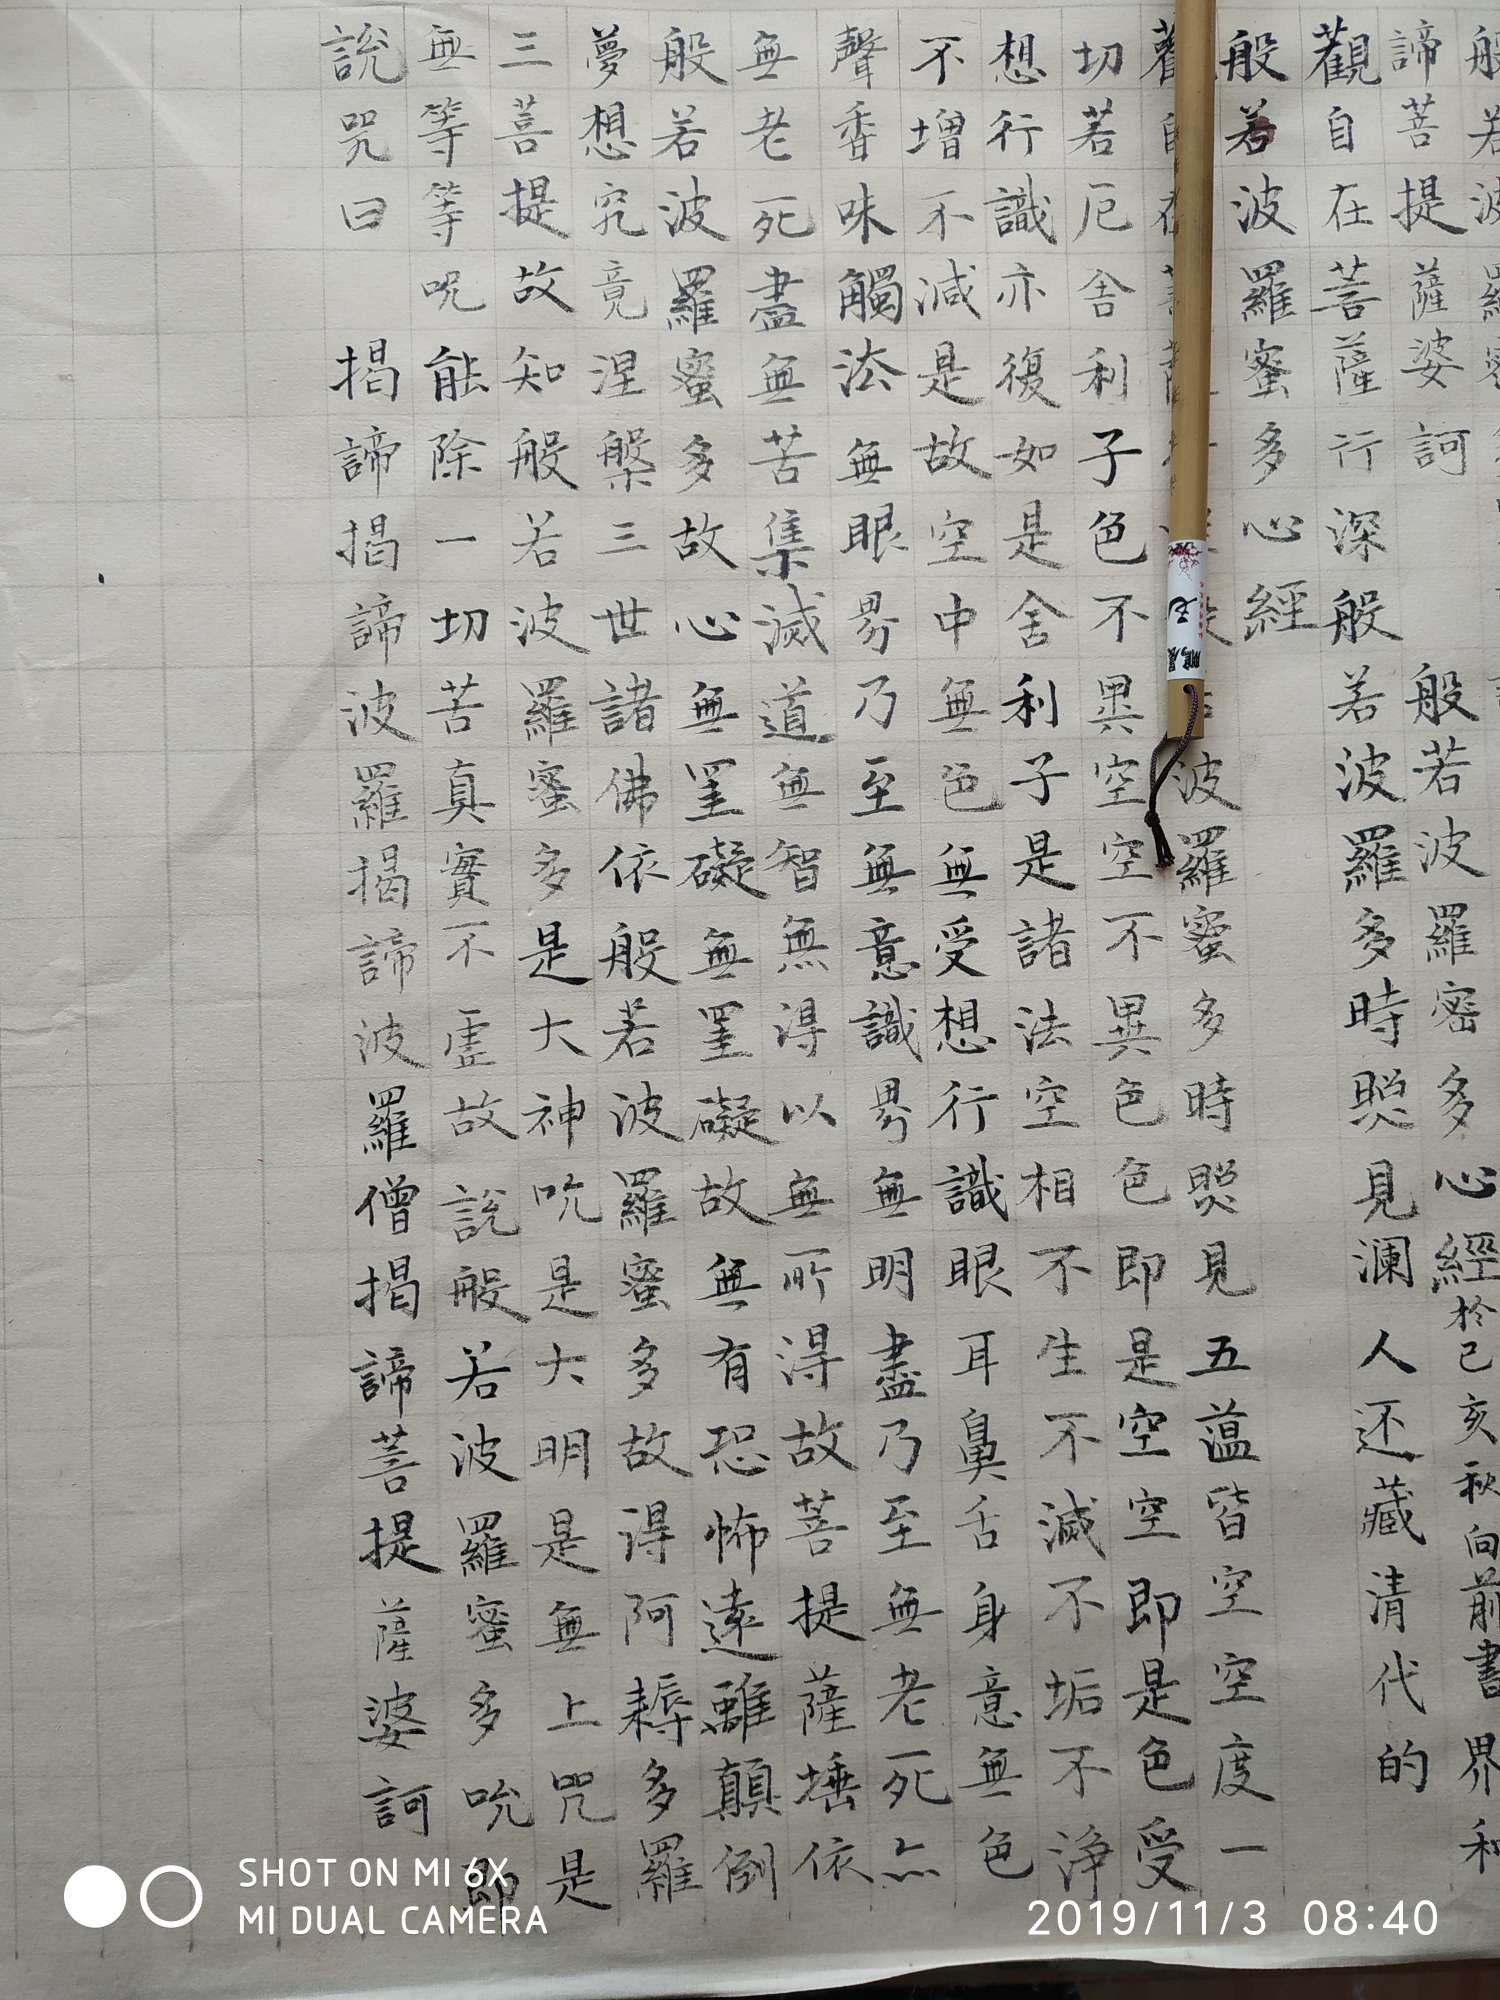 般若波羅蜜
諦菩提薩婆訶 般若波羅密多心經 於己亥秋向前書 界和
觀自在菩薩行深般若波羅多時照見澜人还藏清代的
般若波羅蜜多心經
波羅蜜多時照見五蘊皆空空度一
切若厄舍利子色不異空空不異色色即是空空即是色受
想行識亦復如是舍利子是諸法空相不生不滅不垢不浄
不增不減是故空中無色無受想行識眼耳鼻舌身意無色
聲香味觸法無眼界乃至無意識界無明盡乃至無老死亦
無老死盡無苦集滅道無智無得以無所得故菩提薩埵依
般若波羅蜜多故心無罣礙無罣礙故無有恐怖遠離顛倒
夢想究竟涅槃三世諸佛依般若波羅蜜多故得阿耨多羅
三菩提故知般若波羅蜜多是大神咒是大明是無上咒是
無等等咒能除一切苦真實不虛故說般若波羅蜜多咒即
說咒曰 揭諦揭諦波羅揭諦波羅僧揭諦菩提薩婆訶
SHOT ON MI 6X
MI DUAL CAMERA
2019/11/3 08:40